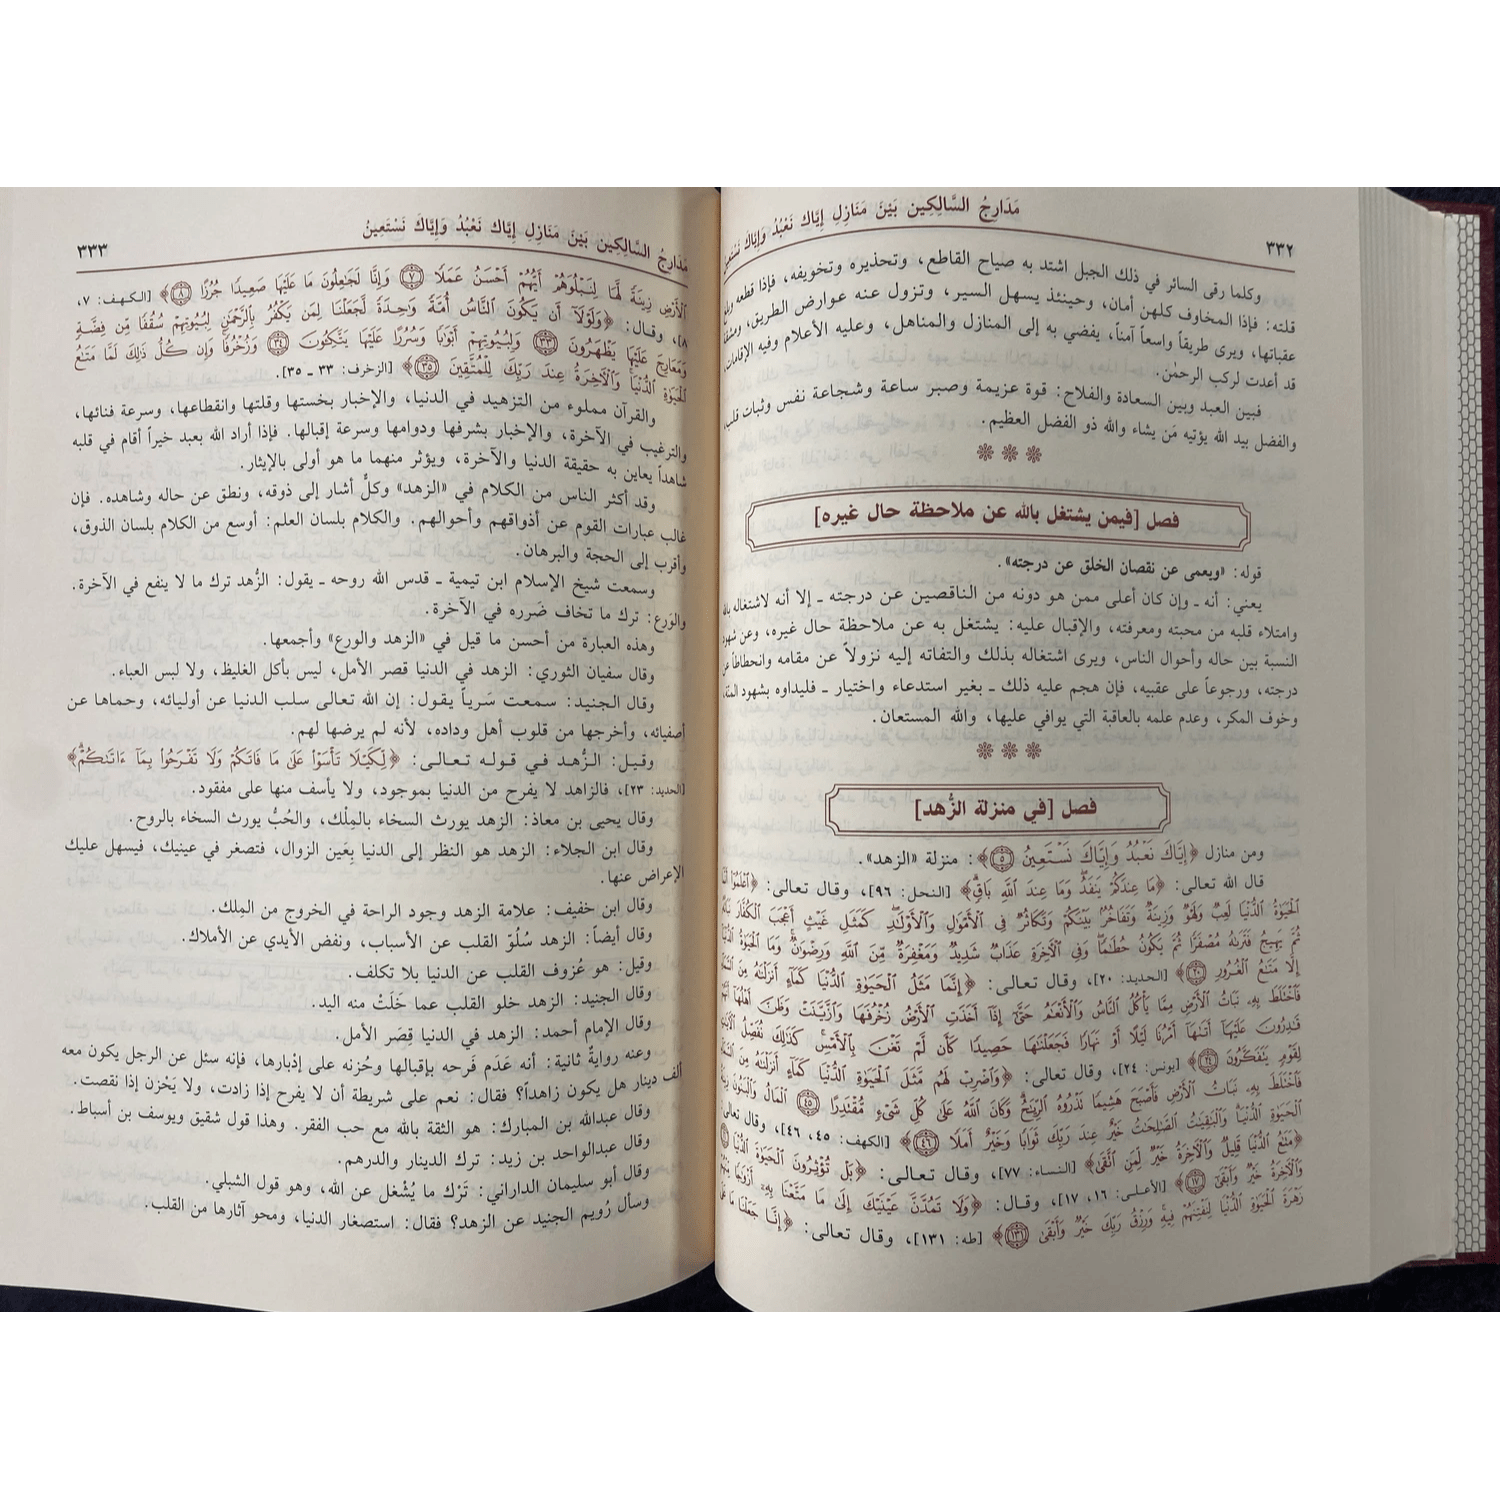 ٣٣٢
مَدَارِجُ السَّالِكِين بَيْنَ مَنَازِلِ إِيَّاكَ نَعْبُدُ وَإِيَّاكَ نَسْتَعِينُ
وكلما رقى السائر في ذلك الجبل اشتد به صياح القاطع، وتحذيره وتخويفه، فإذا قطعه وبلغ
قلته: فإذا المخاوف كلهن أمان، وحينئذ يسهل السير، وتزول عنه عوارض الطريق، ومشقة
عقباتها، ويرى طريقاً واسعاً آمناً، يفضي به إلى المنازل والمناهل، وعليه الأعلام وفيه الإقامات،
قد أعدت لركب الرحمٰن.
فبين العبد وبين السعادة والفلاح: قوة عزيمة وصبر ساعة وشجاعة نفس وثبات قلب،
والفضل بيد الله يؤتيه مَن يشاء والله ذو الفضل العظيم.
فصل [فيمن يشتغل بالله عن ملاحظة حال غيره]
قوله: «ويعمى عن نقصان الخلق عن درجته».
يعني: أنه ـ وإن كان أعلى ممن هو دونه من الناقصين عن درجته ـ إلا أنه لاشتغاله بالله
وامتلاء قلبه من محبته ومعرفته، والإقبال عليه: يشتغل به عن ملاحظة حال غيره، وعن شهود
النسبة بين حاله وأحوال الناس، ويرى اشتغاله بذلك والتفاته إليه نزولاً عن مقامه وانحطاطاً عن
درجته، ورجوعاً على عقبيه، فإن هجم عليه ذلك ـ بغير استدعاء واختيار ـ فليداوه بشهود المنة،
وخوف المكر، وعدم علمه بالعاقبة التي يوافي عليها، والله المستعان.
فصل [في منزلة الزُّهد]
ومن منازل ﴿إِيَّاكَ نَعْبُدُ وَإِيَّاكَ نَسْتَعِينُ ٥﴾: منزلة «الزهد».
قال الله تعالى: ﴿مَا عِندَكُمْ يَنفَدُ وَمَا عِندَ ٱللَّهِ بَاقٍ﴾ [النحل: ٩٦]، وقال تعالى: ﴿ٱعْلَمُوٓا۟ أَنَّمَا
ٱلْحَيَوٰةُ ٱلدُّنْيَا لَعِبٌ وَلَهْوٌ وَزِينَةٌ وَتَفَاخُرٌۢ بَيْنَكُمْ وَتَكَاثُرٌ فِى ٱلْأَمْوَٰلِ وَٱلْأَوْلَـٰدِ كَمَثَلِ غَيْثٍ أَعْجَبَ ٱلْكُفَّارَ نَبَاتُهُۥ
ثُمَّ يَهِيجُ فَتَرَىٰهُ مُصْفَرًّا ثُمَّ يَكُونُ حُطَـٰمًا وَفِى ٱلْـَٔاخِرَةِ عَذَابٌ شَدِيدٌ وَمَغْفِرَةٌ مِّنَ ٱللَّهِ وَرِضْوَٰنٌ وَمَا ٱلْحَيَوٰةُ ٱلدُّنْيَآ
إِلَّا مَتَـٰعُ ٱلْغُرُورِ ٢٠﴾ [الحديد: ٢٠]، وقال تعالى: ﴿إِنَّمَا مَثَلُ ٱلْحَيَوٰةِ ٱلدُّنْيَا كَمَآءٍ أَنزَلْنَـٰهُ مِنَ ٱلسَّمَآءِ
فَٱخْتَلَطَ بِهِۦ نَبَاتُ ٱلْأَرْضِ مِمَّا يَأْكُلُ ٱلنَّاسُ وَٱلْأَنْعَـٰمُ حَتَّىٰٓ إِذَآ أَخَذَتِ ٱلْأَرْضُ زُخْرُفَهَا وَٱزَّيَّنَتْ وَظَنَّ أَهْلُهَآ أَنَّهُمْ
قَـٰدِرُونَ عَلَيْهَآ أَتَىٰهَآ أَمْرُنَا لَيْلًا أَوْ نَهَارًا فَجَعَلْنَـٰهَا حَصِيدًا كَأَن لَّمْ تَغْنَ بِٱلْأَمْسِ كَذَٰلِكَ نُفَصِّلُ ٱلْـَٔايَـٰتِ
لِقَوْمٍ يَتَفَكَّرُونَ ٢٤﴾ [يونس: ٢٤]، وقال تعالى: ﴿وَٱضْرِبْ لَهُم مَّثَلَ ٱلْحَيَوٰةِ ٱلدُّنْيَا كَمَآءٍ أَنزَلْنَـٰهُ مِنَ ٱلسَّمَآءِ
فَٱخْتَلَطَ بِهِۦ نَبَاتُ ٱلْأَرْضِ فَأَصْبَحَ هَشِيمًا تَذْرُوهُ ٱلرِّيَـٰحُ وَكَانَ ٱللَّهُ عَلَىٰ كُلِّ شَىْءٍ مُّقْتَدِرًا ٤٥ ٱلْمَالُ وَٱلْبَنُونَ زِينَةُ
ٱلْحَيَوٰةِ ٱلدُّنْيَا وَٱلْبَـٰقِيَـٰتُ ٱلصَّـٰلِحَـٰتُ خَيْرٌ عِندَ رَبِّكَ ثَوَابًا وَخَيْرٌ أَمَلًا ٤٦﴾ [الكهف: ٤٥، ٤٦]، وقال تعالى:
﴿مَتَـٰعُ ٱلدُّنْيَا قَلِيلٌ وَٱلْـَٔاخِرَةُ خَيْرٌ لِّمَنِ ٱتَّقَىٰ﴾ [النساء: ٧٧]، وقال تعالى: ﴿بَلْ تُؤْثِرُونَ ٱلْحَيَوٰةَ ٱلدُّنْيَا
وَٱلْـَٔاخِرَةُ خَيْرٌ وَأَبْقَىٰٓ ١٧﴾ [الأعلى: ١٦، ١٧]، وقال: ﴿وَلَا تَمُدَّنَّ عَيْنَيْكَ إِلَىٰ مَا مَتَّعْنَا بِهِۦٓ أَزْوَٰجًا مِّنْهُمْ
زَهْرَةَ ٱلْحَيَوٰةِ ٱلدُّنْيَا لِنَفْتِنَهُمْ فِيهِ وَرِزْقُ رَبِّكَ خَيْرٌ وَأَبْقَىٰ ١٣١﴾ [طه: ١٣١]، وقال تعالى: ﴿إِنَّا جَعَلْنَا مَا عَلَى
مَدَارِجُ السَّالِكِين بَيْنَ مَنَازِلِ إِيَّاكَ نَعْبُدُ وَإِيَّاكَ نَسْتَعِينُ
٣٣٣
ٱلْأَرْضِ زِينَةً لَّهَا لِنَبْلُوَهُمْ أَيُّهُمْ أَحْسَنُ عَمَلًا ٧ وَإِنَّا لَجَـٰعِلُونَ مَا عَلَيْهَا صَعِيدًا جُرُزًا ٨﴾ [الكهف: ٧،
٨]، وقال: ﴿وَلَوْلَآ أَن يَكُونَ ٱلنَّاسُ أُمَّةً وَٰحِدَةً لَّجَعَلْنَا لِمَن يَكْفُرُ بِٱلرَّحْمَـٰنِ لِبُيُوتِهِمْ سُقُفًا مِّن فِضَّةٍ
وَمَعَارِجَ عَلَيْهَا يَظْهَرُونَ ٣٣ وَلِبُيُوتِهِمْ أَبْوَٰبًا وَسُرُرًا عَلَيْهَا يَتَّكِـُٔونَ ٣٤ وَزُخْرُفًا وَإِن كُلُّ ذَٰلِكَ لَمَّا مَتَـٰعُ
ٱلْحَيَوٰةِ ٱلدُّنْيَا وَٱلْـَٔاخِرَةُ عِندَ رَبِّكَ لِلْمُتَّقِينَ ٣٥﴾ [الزخرف: ٣٣ ـ ٣٥].
والقرآن مملوء من التزهيد في الدنيا، والإخبار بخستها وقلتها وانقطاعها، وسرعة فنائها،
والترغيب في الآخرة، والإخبار بشرفها ودوامها وسرعة إقبالها. فإذا أراد الله بعبد خيراً أقام في قلبه
شاهداً يعاين به حقيقة الدنيا والآخرة، ويؤثر منهما ما هو أولى بالإيثار.
وقد أكثر الناس من الكلام في «الزهد» وكلٌّ أشار إلى ذوقه، ونطق عن حاله وشاهده. فإن
غالب عبارات القوم عن أذواقهم وأحوالهم. والكلام بلسان العلم: أوسع من الكلام بلسان الذوق،
وأقرب إلى الحجة والبرهان.
وسمعت شيخ الإسلام ابن تيمية ـ قدس الله روحه ـ يقول: الزُّهد ترك ما لا ينفع في الآخرة.
والوَرع: ترك ما تخاف ضَرره في الآخرة.
وهذه العبارة من أحسن ما قيل في «الزهد والورع» وأجمعها.
وقال سفيان الثوري: الزهد في الدنيا قصر الأمل، ليس بأكل الغليظ، ولا لبس العباء.
وقال الجنيد: سمعت سَرياً يقول: إن الله تعالى سلب الدنيا عن أوليائه، وحماها عن
أصفيائه، وأخرجها من قلوب أهل وداده، لأنه لم يرضها لهم.
وقيل: الزُّهد في قوله تعالى: ﴿لِّكَيْلَا تَأْسَوْا۟ عَلَىٰ مَا فَاتَكُمْ وَلَا تَفْرَحُوا۟ بِمَآ ءَاتَىٰكُمْ﴾
[الحديد: ٢٣]، فالزاهد لا يفرح من الدنيا بموجود، ولا يأسف منها على مفقود.
وقال يحيى بن معاذ: الزهد يورث السخاء بالمِلْك، والحُبُّ يورث السخاء بالروح.
وقال ابن الجلاء: الزهد هو النظر إلى الدنيا بِعَين الزوال، فتصغر في عينيك، فيسهل عليك
الإعراض عنها.
وقال ابن خفيف: علامة الزهد وجود الراحة في الخروج من المِلك.
وقال أيضاً: الزهد سُلُوّ القلب عن الأسباب، ونفض الأيدي عن الأملاك.
وقيل: هو عُزوف القلب عن الدنيا بلا تكلف.
وقال الجنيد: الزهد خلو القلب عما خَلَتْ منه اليد.
وقال الإمام أحمد: الزهد في الدنيا قِصَر الأمل.
وعنه روايةٌ ثانية: أنه عَدَم فَرحه بإقبالها وحُزنه على إدْبارها، فإنه سئل عن الرجل يكون معه
ألف دينار هل يكون زاهداً؟ فقال: نعم على شريطة أن لا يفرح إذا زادت، ولا يَحْزن إذا نقصت.
وقال عبدالله بن المبارك: هو الثقة بالله مع حب الفقر. وهذا قول شقيق ويوسف بن أسباط.
وقال عبدالواحد بن زيد: ترك الدينار والدرهم.
وقال أبو سليمان الداراني: تَرْك ما يُشْغل عن الله، وهو قول الشبلي.
وسأل رُويم الجنيد عن الزهد؟ فقال: استصغار الدنيا، ومحو آثارها من القلب.